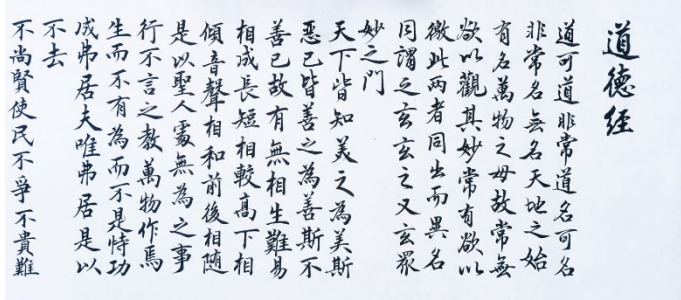 道德經
道可道非常道名可名
非常名無名天地之始
有名萬物之母故常無
欲以觀其妙常有欲以
徼此兩者同出而異名
同謂之玄玄之又玄眾
妙之門
天下皆知美之為美斯
惡已皆善之為善斯不
善已故有無相生難易
相成長短相較高下相
傾音聲相和前後相随
是以聖人處無為之事
行不言之教萬物作焉
生而不有為而不是恃功
成弗居夫唯弗居是以
不去
不尚賢使民不爭不貴難